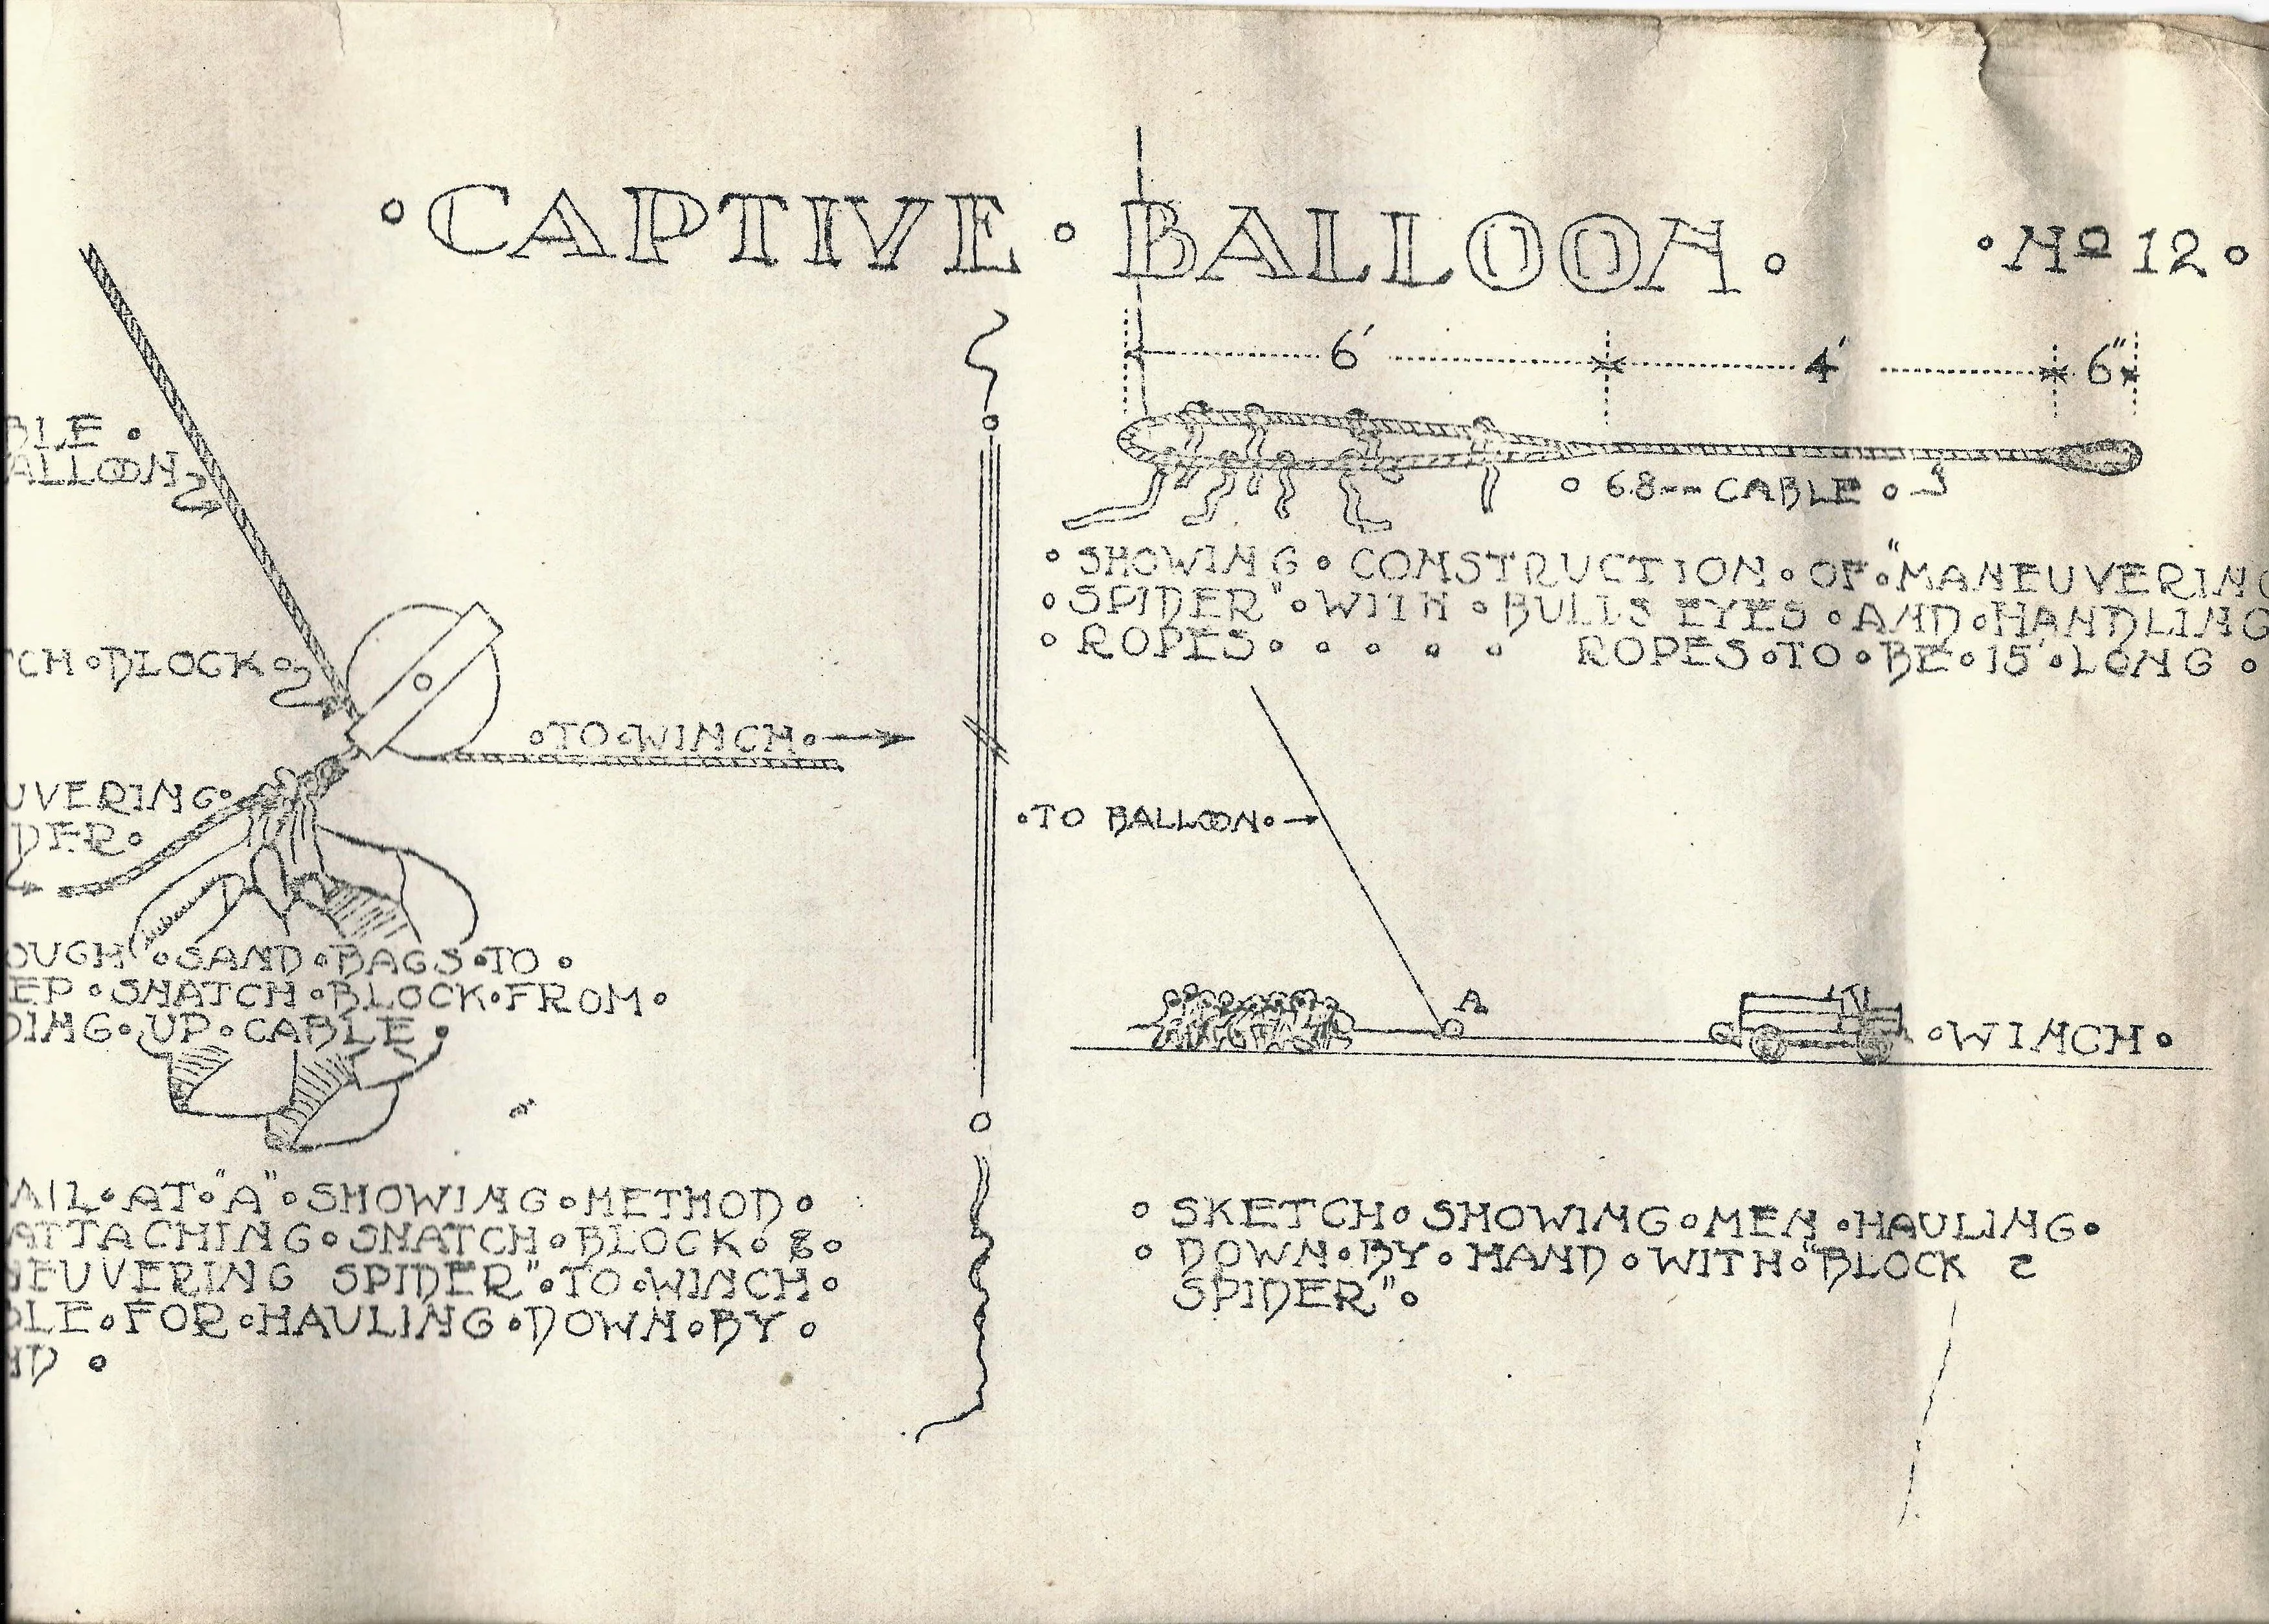 ∘CAPTIVE∘BALLOON∘
∘No 12∘
BLE∘
ALLOON
TCH∘BLOCK∘
∘TO∘WINCH∘
UVERING∘
DER∘
OUGH∘SAND∘BAGS∘TO∘
EP∘SNATCH∘BLOCK∘FROM∘
DING∘UP∘CABLE∘
AIL∘AT∘"A"∘SHOWING∘METHOD∘
ATTACHING∘SNATCH∘BLOCK∘&∘
NEUVERING SPIDER"∘TO∘WINCH∘
BLE∘FOR∘HAULING∘DOWN∘BY∘
ND∘
6' 4' 6"
∘68-- CABLE∘
∘SHOWING∘CONSTRUCTION∘OF∘"MANEUVERING
∘SPIDER"∘WITH∘BULLS EYES∘AND∘HANDLING
∘ROPES∘ ∘ ∘ ∘ ∘ ROPES∘TO∘BE∘15'∘LONG∘
∘TO BALLOON∘
A
∘WINCH∘
∘SKETCH∘SHOWING∘MEN∘HAULING∘
∘DOWN∘BY∘HAND∘WITH∘"BLOCK &
SPIDER"∘